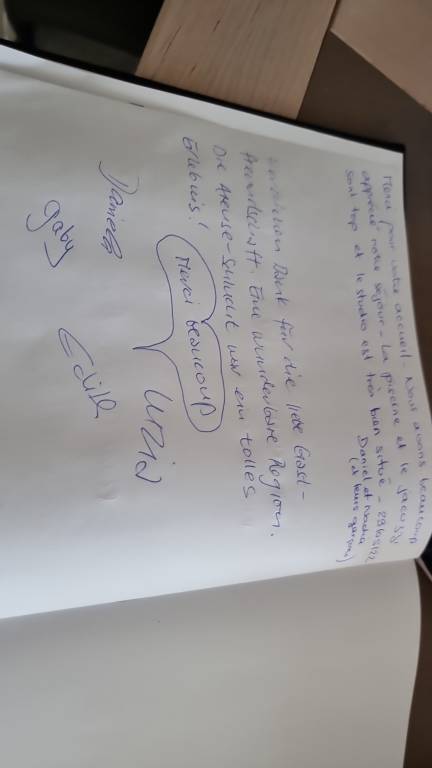 Merci pour votre accueil - Nous avons beaucoup
apprécié notre séjour - La piscine et le jacuzzi
sont top et le studio est très bien situé - 29/05/22
Daniel et
(et leurs garçons)
Dank für die liebe Gast-
freundschaft. Eine wunderbare Region.
Die Areuse-Schlucht war ein tolles
Erlebnis!
Merci beaucoup
Daniela
Gaby
Edith